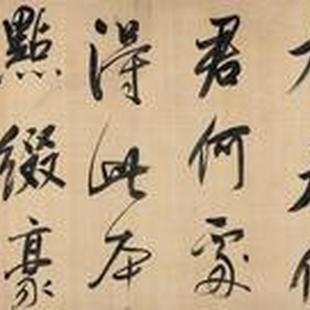 君何處
得此本
點綴豪